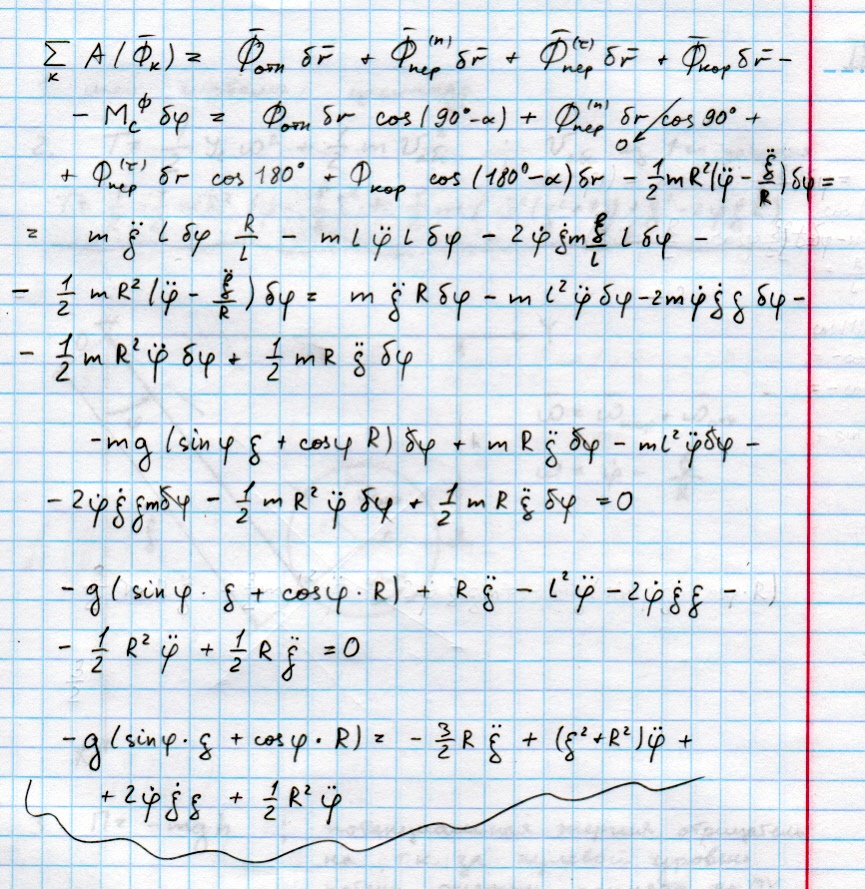 ∑ₖ A(Φ̄ₖ) = Φ̄отн δr̄ + Φ̄пер⁽ⁿ⁾ δr̄ + Φ̄пер⁽ᵗ⁾ δr̄ + Φ̄кор δr̄ −
− M_C^Φ δφ = Φотн δr cos(90°-α) + Φпер⁽ⁿ⁾ δr cos 90° + 0
+ Φпер⁽ᵗ⁾ δr cos 180° + Φкор cos (180°-α) δr − 1/2 mR²(φ̈ − ξ̈/R) δφ =
= m ξ̈ l δφ R/l − m l φ̈ l δφ − 2 φ̇ ξ̇ m ξ/l l δφ −
− 1/2 m R² (φ̈ − ξ̈/R) δφ = m ξ̈ R δφ − m l² φ̈ δφ − 2m φ̇ ξ̇ ξ δφ −
− 1/2 m R² φ̈ δφ + 1/2 m R ξ̈ δφ
−mg (sin φ ξ + cos φ R) δφ + m R ξ̈ δφ − m l² φ̈ δφ −
− 2 φ̇ ξ̇ ξ m δφ − 1/2 m R² φ̈ δφ + 1/2 m R ξ̈ δφ = 0
− g ( sin φ · ξ + cos φ · R) + R ξ̈ − l² φ̈ − 2 φ̇ ξ̇ ξ −
− 1/2 R² φ̈ + 1/2 R ξ̈ = 0
− g (sin φ · ξ + cos φ · R) = − 3/2 R ξ̈ + (ξ² + R²) φ̈ +
+ 2 φ̇ ξ̇ ξ + 1/2 R² φ̈